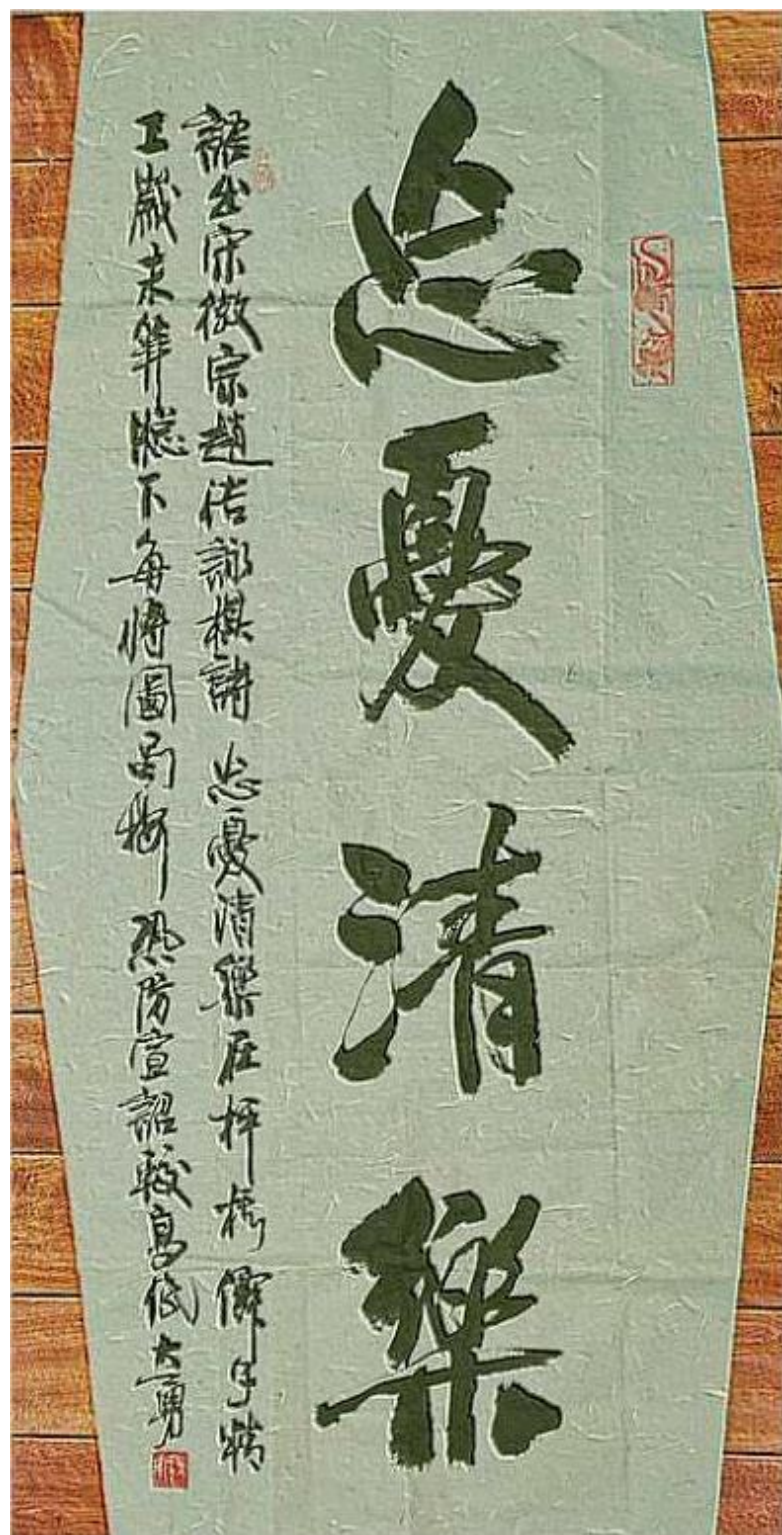 忘憂清樂
語出宋徽宗趙佶詠棋詩 忘憂清樂在枰棋 僊子精
工歲未笄 牕下每將圖局按 恐防宣詔較高低 大勇